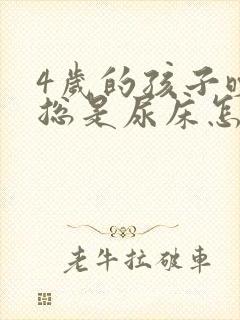 4歲的孩子
總是尿床怎
老牛拉破車